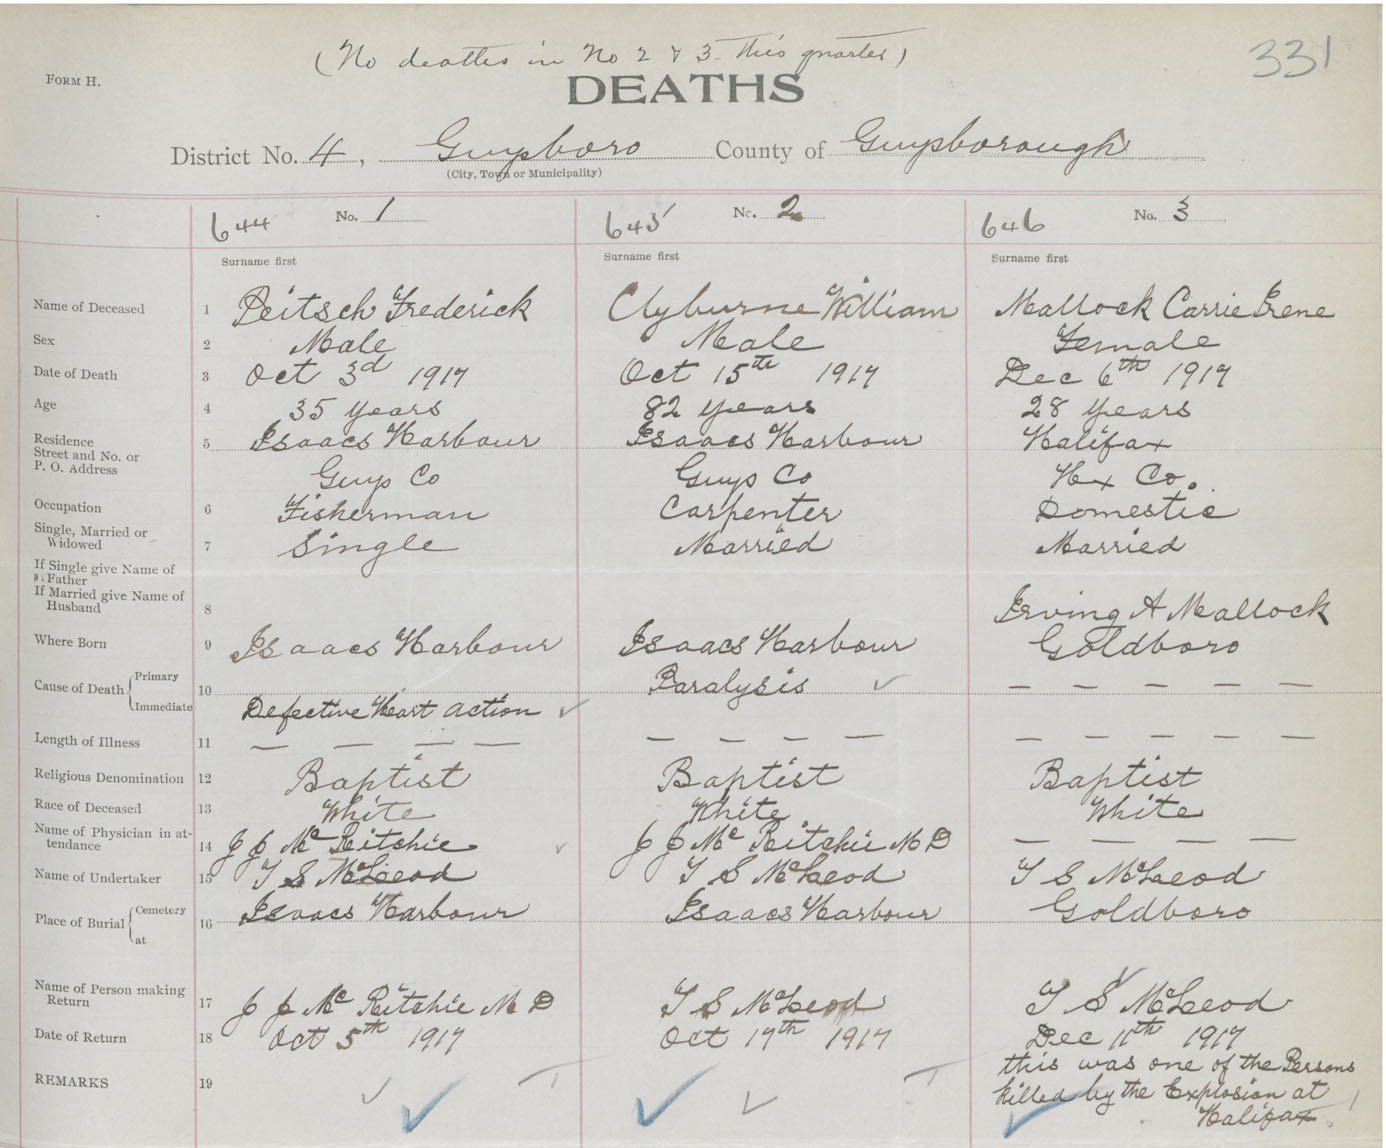 (No deaths in No 2 & 3 this quarter)
331
FORM H.
DEATHS
District No. 4, Guysboro County of Guysborough
(City, Town or Municipality)
644 No. 1 645 No. 2 646 No. 3
Surname first Surname first Surname first
Name of Deceased 1 Deitsch Frederick Clyburne William Mallock Carrie Irene
Sex 2 Male Male Female
Date of Death 3 Oct 3rd 1917 Oct 15th 1917 Dec 6th 1917
Age 4 35 years 82 years 28 years
Residence Street and No. or P. O. Address 5 Isaacs Harbour Isaacs Harbour Halifax
Guys Co Guys Co Hx Co.
Occupation 6 Fisherman Carpenter Domestic
Single, Married or Widowed 7 Single Married Married
If Single give Name of Father
If Married give Name of Husband 8 Irving A Mallock
Where Born 9 Isaacs Harbour Isaacs Harbour Goldboro
Cause of Death Primary 10 Paralysis — — — — —
Immediate Defective Heart action
Length of Illness 11 — — — — — — — — — — — — —
Religious Denomination 12 Baptist Baptist Baptist
Race of Deceased 13 White White White
Name of Physician in attendance 14 J J Mc Ritchie J J Mc Ritchie M D — — — —
Name of Undertaker 15 T S McLeod T S McLeod T S McLeod
Place of Burial Cemetery at 16 Isaacs Harbour Isaacs Harbour Goldboro
Name of Person making Return 17 J J Mc Ritchie M D T S McLeod T S McLeod
Date of Return 18 Oct 5th 1917 Oct 17th 1917 Dec 11th 1917
REMARKS 19 this was one of the Persons
killed by the Explosion at
Halifax